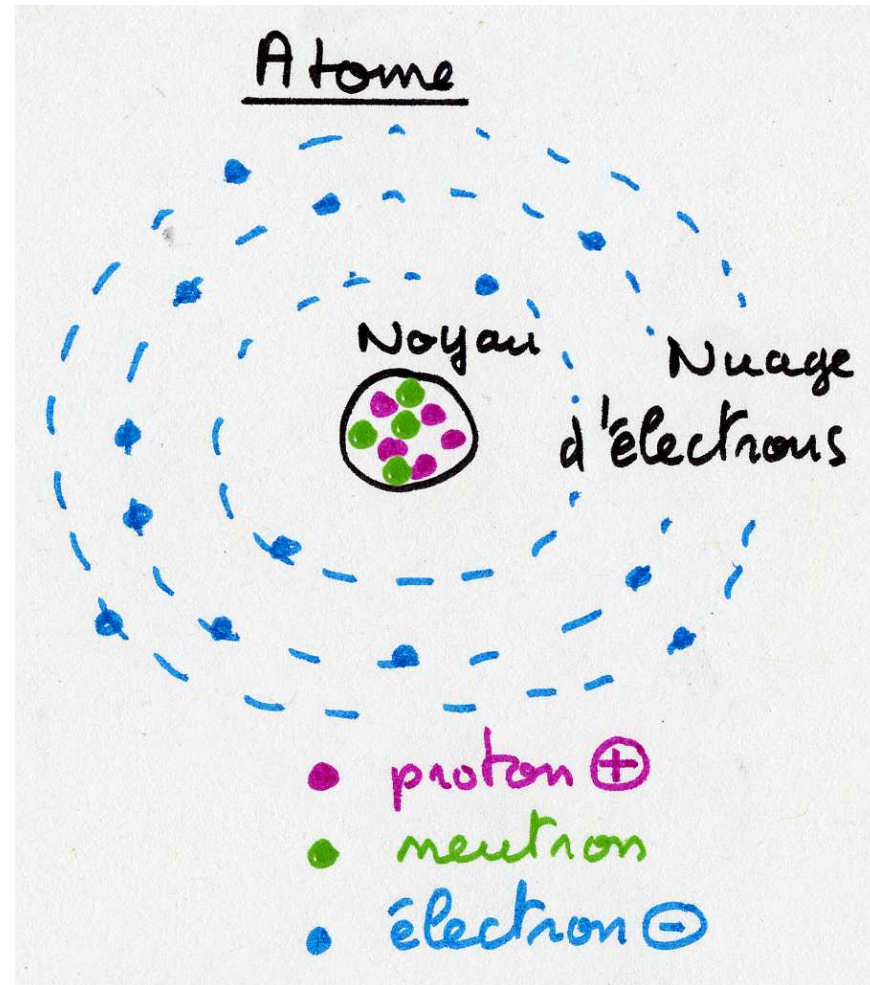 Atome
Noyau
Nuage
d'électrons
proton +
neutron
électron -